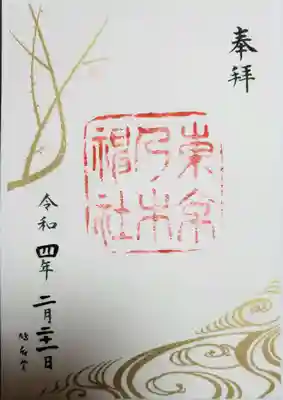 奉拝
東京
乃木
神社
令和四年二月二十一日
鳩居堂